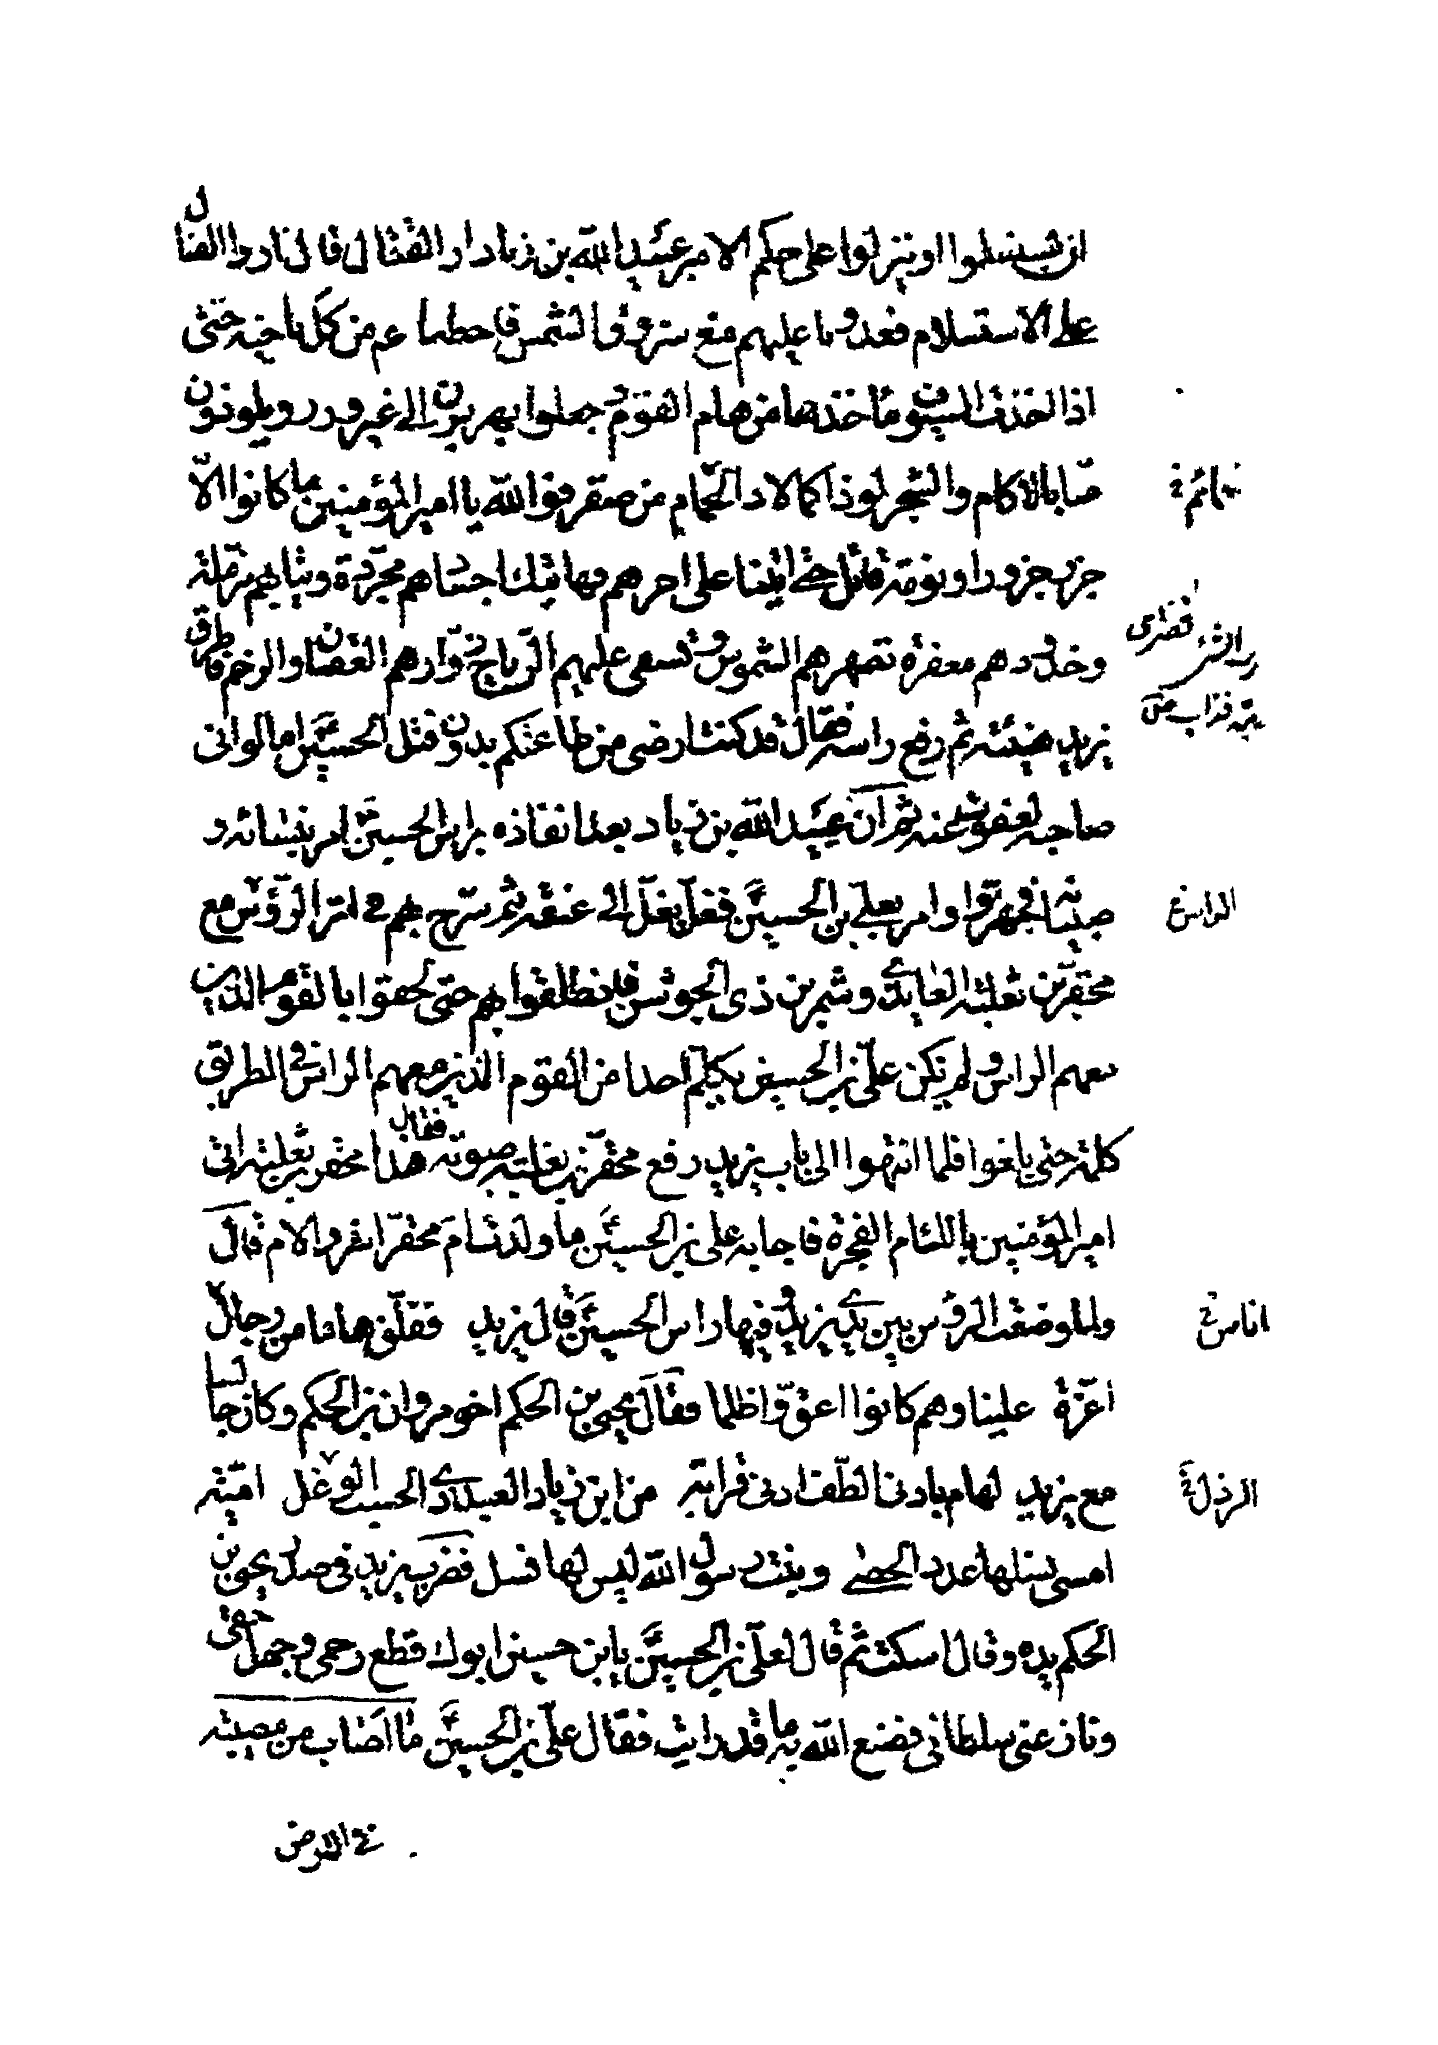 ان يستسلموا او ينزلوا على حكم الامير عبيد الله بن زياد او القتال قال فاختاروا القتال
على الاستسلام فعدونا عليهم مع شروق الشمس فاحطنا بهم من كل ناحية حتى
اذا اخذت السيوف مأخذها من هام القوم جعلوا يهربون الى غير وزر ويلوذون
منّا بالاكام والشجر لوذا كما لاذ الحمام من صقر فو الله يا امير المؤمنين ما كانوا الاّ
جزر جزور او نومة قائل حتى اتينا على اخرهم فهاتيك اجسادهم مجردة وثيابهم مرمّلة
وخدودهم معفرة تصهرهم الشموس وتسفى عليهم الرياح زوّارهم العقبان والرخم فاطرق
يزيد هنيئة ثم رفع راسه فقال قد كنت ارضى من طاعتكم بدون قتل الحسين اما لو انى
صاحبه لعفوت عنه ثم ان عبيد الله بن زياد بعد انفاذه براس الحسين امر بنسائه و
صبيانه فجهزوا وامر بعلي بن الحسين فغلّ بغلّ الى عنقه ثم سرّح بهم في اثر الرؤس مع
محفر بن ثعلبة العايذي وشمر بن ذى الجوشن فانطلقوا بهم حتى لحقوا بالقوم الذين
معهم الراس ولم يكن علىّ بن الحسين يكلم احدا من القوم الذين معهم الراس فى الطريق
كلمة حتى بلغوا فلما انتهوا الى باب يزيد رفع محفر بن ثعلبة صوته فقال هذا محفر بن ثعلبة اتى
امير المؤمنين باللئام الفجرة فاجابه على بن الحسين ما ولدت ام محفر اشر والام قال
ولما وضعت الرؤس بين يدي يزيد وفيها راس الحسين قال يزيد فقلّق هاما من رجال
اعزة علينا وهم كانوا اعق واظلما فقال يحيى بن الحكم اخو مروان بن الحكم وكان جالسا
مع يزيد لهام بادنى الطف ادنى قرابة من ابن زياد العبد ذي الحسب الوغل امية
امسى نسلها عدد الحصى وبنت رسول الله ليس لها نسل فضرب يزيد فى صدر يحيى بن
الحكم يده وقال اسكت ثم قال لعلىّ بن الحسين يابن حسين ابوك قطع رحمى وجهل حقى
ونازعنى سلطانى فصنع الله به ما قد رايت فقال علىّ بن الحسين ما اصاب من مصيبة
الراس خ
اناس خ
الرذل خ
فى الارض